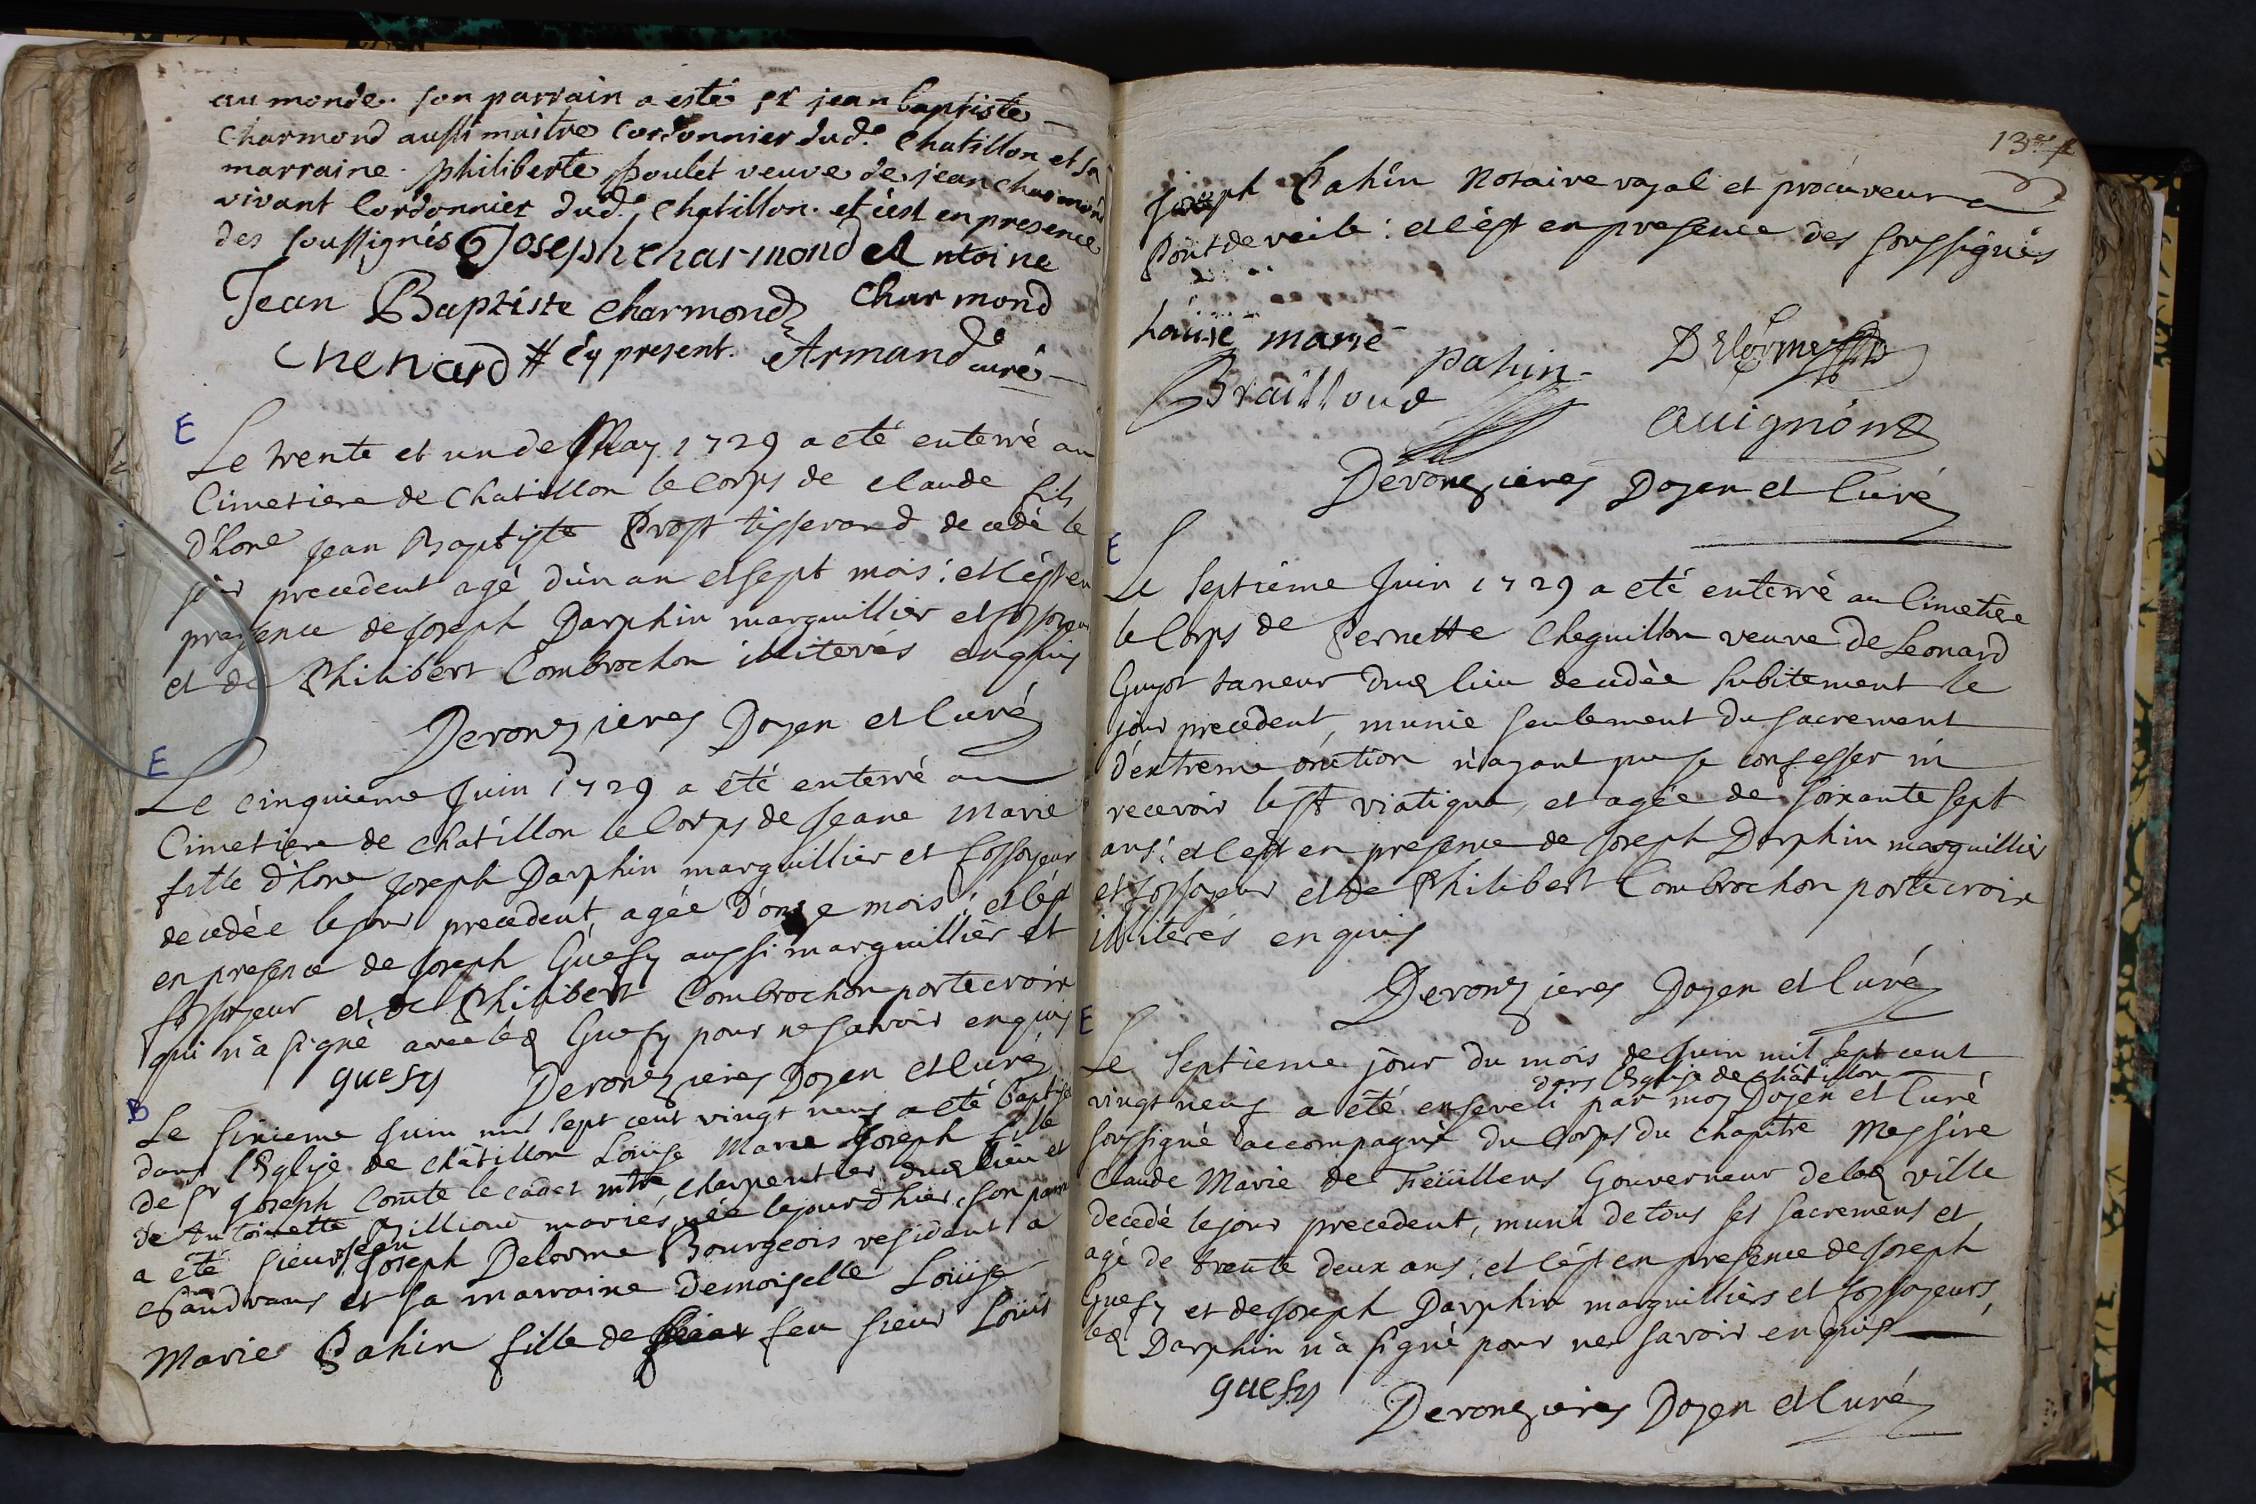 au monde. son parrain a esté sr jean baptiste
charmond aussi maitre cordonnier dud.e chatillon et sa
marraine. philiberte poulet veuve de jean charmond
vivant cordonnier dud.e chatillon. et c'est en presence
des soussignés Joseph charmond Antoine
Jean Baptiste charmond charmond
chenard # cy present. Armand curé
E
Le trente et un de May 1729 a eté enterré au
Cimetiere de Chatillon le Corps de claude fils
d'hone jean Baptiste Prost tisserand decedé le
jour precedent agé d'un an et sept mois: et c'est en
presence de Joseph Darphin marguillier et fossoyeur
et de Philibert Combrochon illiterés enquis
Deronzieres Doyen et Curé
E
Le cinquieme Juin 1729 a eté enterré au
Cimetiere de chatillon le Corps de Jeane Marie
fille d'hone Joseph Darphin marguillier et fossoyeur
decedée le jour precedent, agée d'onze mois: et c'est
en presence de Joseph Guesy aussi marguillier et
fossoyeur et de Philibert Combrochon portecroix
qui n'a signé avec led Guesy pour ne savoir enquis
guesy Deronzieres Doyen et Curé
B
Le sixieme Juin mil sept cent vingt neuf a eté baptisé
dans l'Eglise de châtillon Loüise Marie Joseph fille
de Sr Joseph Comte le cadet mtre charpentier dud lieu et
de Antoinette Billioud mariés, née le jour d'hier, son parrain
a eté sieur jean Joseph Delorme Bourgeois residant a
Sandrans et sa marraine Demoiselle Loüise
Marie Pahin fille de feu sieur Loüis
13
joseph Pahin Notaire royal et procureur a
Pontdeveile: et c'est en presence des soussignés
Loüise marie
Pahin Delorme
Brailloud
avignon
Deronzieres Doyen et Curé
E
Le septiéme Juin 1729 a eté enterré au Cimetiere
le Corps de Pernette Cheguillon veuve de Leonard
Guyot taneur dud lieu decedée subitement le
jour precedent, munie seulement du sacrement
d'extreme onction n'ayant pu se confesser ni
recevoir le st viatique, et agée de soixante sept
ans: et c'est en presence de Joseph Darphin marguillier
et fossoyeur et de Philibert Combrochon portecroix
illiterés enquis
Deronzieres Doyen et Curé
E
Le septieme jour du mois de Juin mil sept cent
dans l'Eglise de châtillon
vingt neuf a eté enseveli par moy Doyen et Curé
soussigné accompagné du Corps du chapitre Messire
Claude Marie de Feüillens Gouverneur de lad ville
decedé le jour precedent, muni de tous ses sacremens et
agé de trente deux ans: et c'est en presence de Joseph
Guesy et de Joseph Darphin marguilliers et fossoyeurs,
led Darphin n'a signé pour ne savoir enquis
guesy
Deronzieres Doyen et Curé